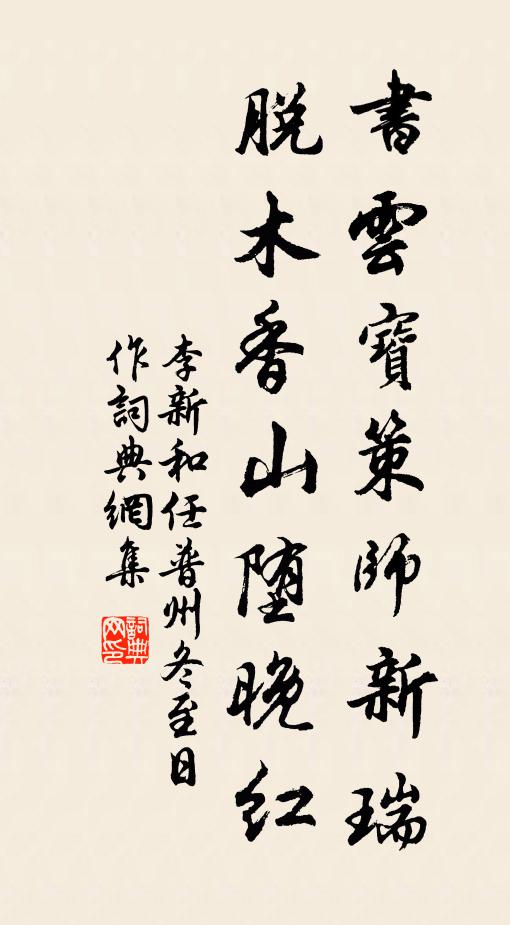 書雲寶策師新瑞
脱木香山堕晚紅
李新和任普州冬至日
作詞典網集
詞典
网印